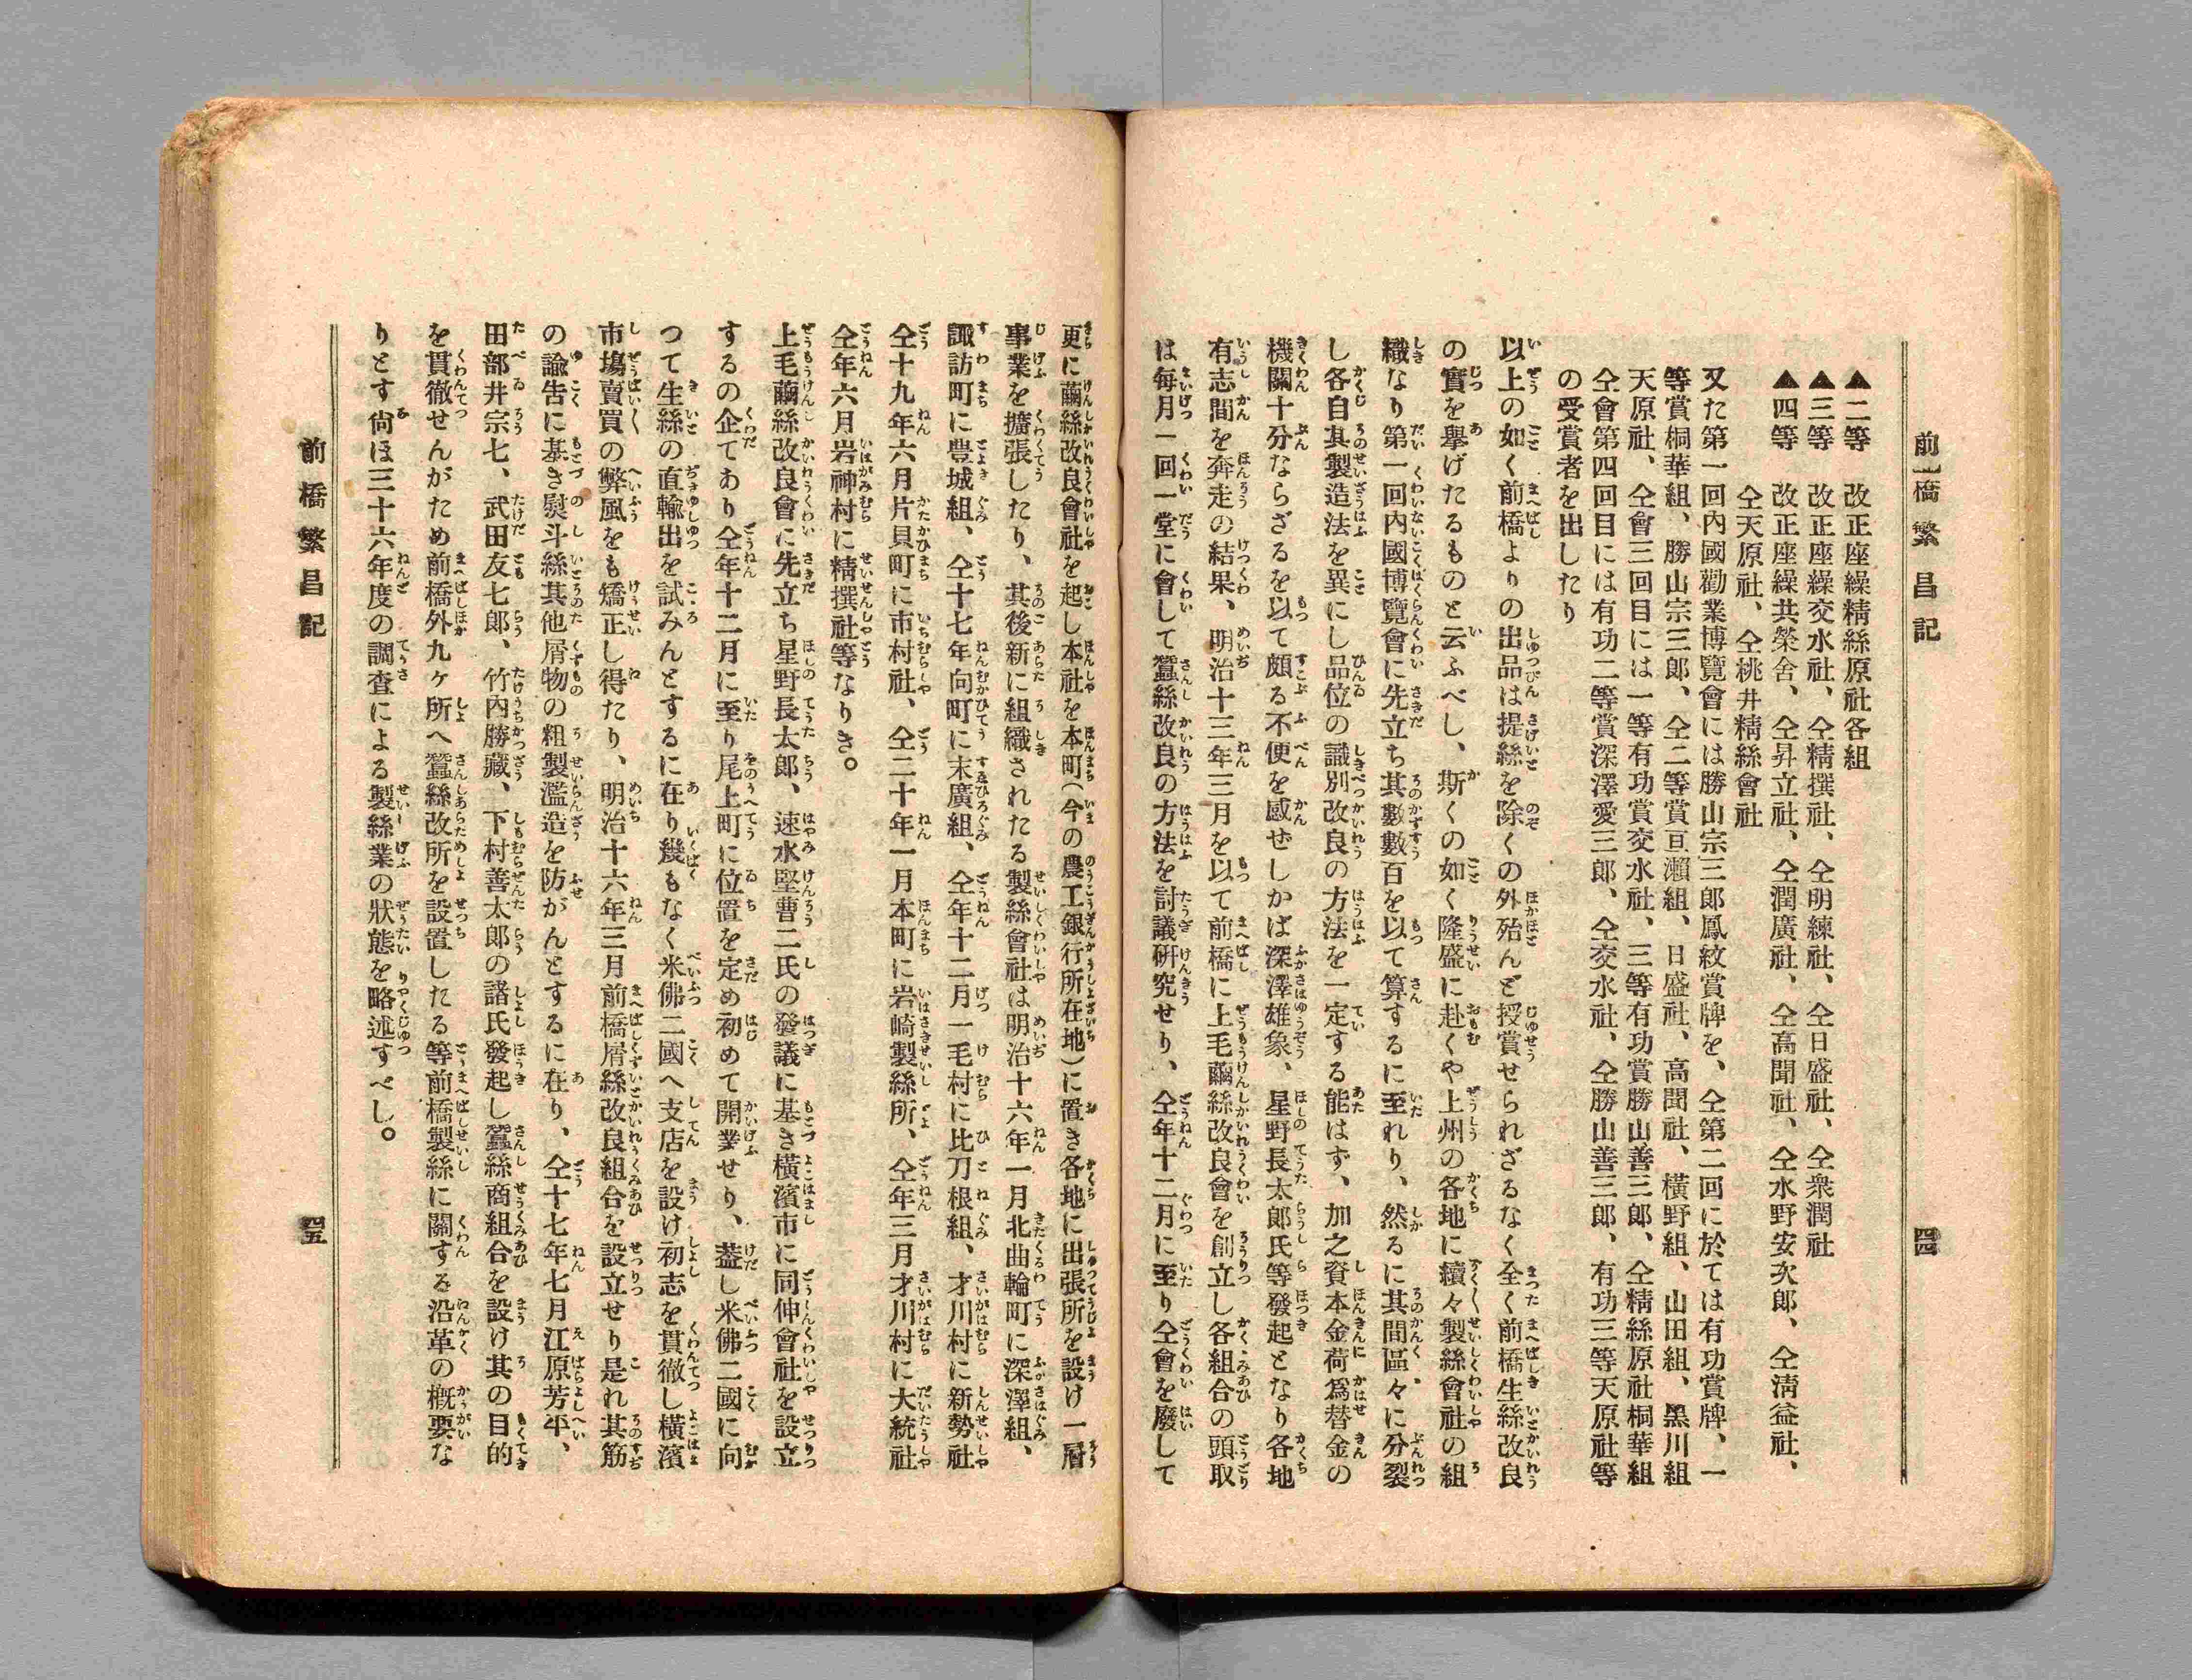 前橋繁昌記
四四
▲二等　改正座繰精絲原社各組
▲三等　改正座繰交水社、仝精撰社、仝明練社、仝日盛社、仝衆潤社
▲四等　改正座繰共榮舍、仝昇立社、仝潤廣社、仝高聞社、仝水野安次郎、仝淸益社、
仝天原社、仝桃井精絲會社
又た第一回內國勸業博覽會には勝山宗三郎鳳紋賞牌を、仝第二回に於ては有功賞牌、一
等賞桐華組、勝山宗三郎、仝二等賞亘瀨組、日盛社、高聞社、橫野組、山田組、黑川組
天原社、仝會三回目には一等有功賞交水社、三等有功賞勝山善三郎、仝精絲原社桐華組
仝會第四回目には有功二等賞深澤愛三郎、仝交水社、仝勝山善三郎、有功三等天原社等
の受賞者を出したり
以上の如く前橋よりの出品は提絲を除くの外殆んど授賞せられざるなく全く前橋生絲改良
の實を擧げたるものと云ふべし、斯くの如く隆盛に赴くや上州の各地に續々製絲會社の組
織なり第一回內國博覽會に先立ち其數數百を以て算するに至れり、然るに其間區々に分裂
し各自其製造法を異にし品位の識別改良の方法を一定する能はず、加之資本金荷爲替金の
機關十分ならざるを以て頗る不便を感ぜしかば深澤雄象、星野長太郎氏等發起となり各地
有志間を奔走の結果、明治十三年三月を以て前橋に上毛繭絲改良會を創立し各組合の頭取
は每月一回一堂に會して蠶絲改良の方法を討議硏究せり、仝年十二月に至り仝會を廢して
更に繭絲改良會社を起し本社を本町（今の農工銀行所在地）に置き各地に出張所を設け一層
事業を擴張したり、其後新に組織されたる製絲會社は明治十六年一月北曲輪町に深澤組、
諏訪町に豊城組、仝十七年向町に末廣組、仝年十二月一毛村に比刀根組、才川村に新勢社
仝十九年六月片貝町に市村社、仝二十年一月本町に岩崎製絲所、仝年三月才川村に大統社
仝年六月岩神村に精撰社等なりき。
上毛繭絲改良會に先立ち星野長太郎、速水堅曹二氏の發議に基き橫濱市に同伸會社を設立
するの企てあり仝年十二月に至り尾上町に位置を定め初めて開業せり、蓋し米佛二國に向
つて生絲の直輸出を試みんとするに在り幾もなく米佛二國へ支店を設け初志を貫徹し橫濱
市塲賣買の弊風をも矯正し得たり、明治十六年三月前橋屑絲改良組合を設立せり是れ其筋
の諭告に基き熨斗絲其他屑物の粗製濫造を防がんとするに在り、仝十七年七月江原芳平、
田部井宗七、武田友七郎、竹內勝藏、下村善太郎の諸氏發起し蠶絲商組合を設け其の目的
を貫徹せんがため前橋外九ヶ所へ蠶絲改所を設置したる等前橋製絲に關する沿革の槪要な
りとす尙ほ三十六年度の調査による製絲業の狀態を略述すべし。
前橋繁昌記
四五